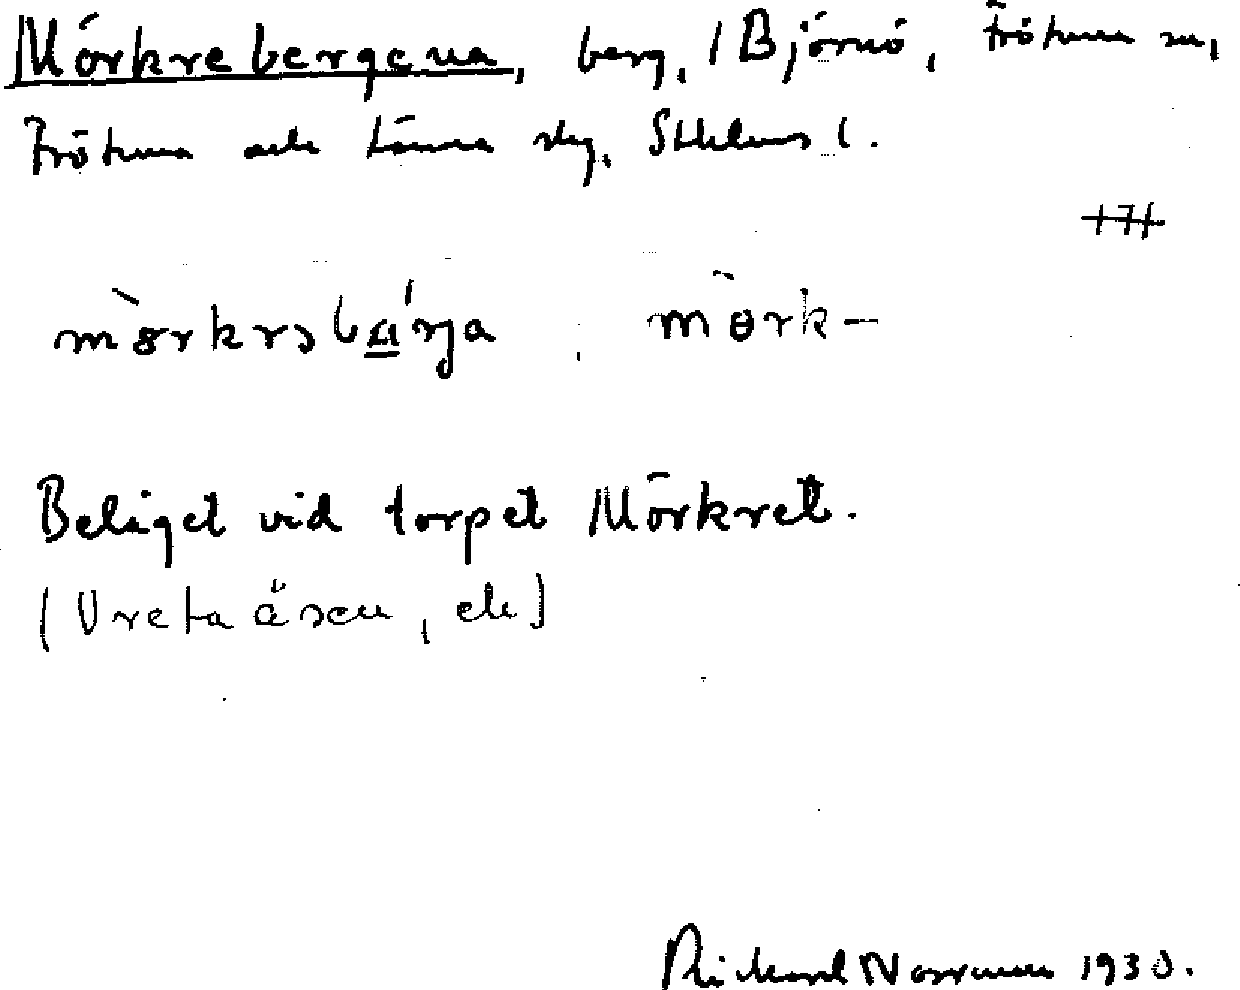 Mörkrebergena, berg, / Björnö, Frötuna sn,
Frötuna och Länna skg, Sthlms l.
171
mörkrsbärja , mörk-
Beläget vid torpet Mörkret.
(Vretaåsen, ek)
Rickard Norrman 1930.